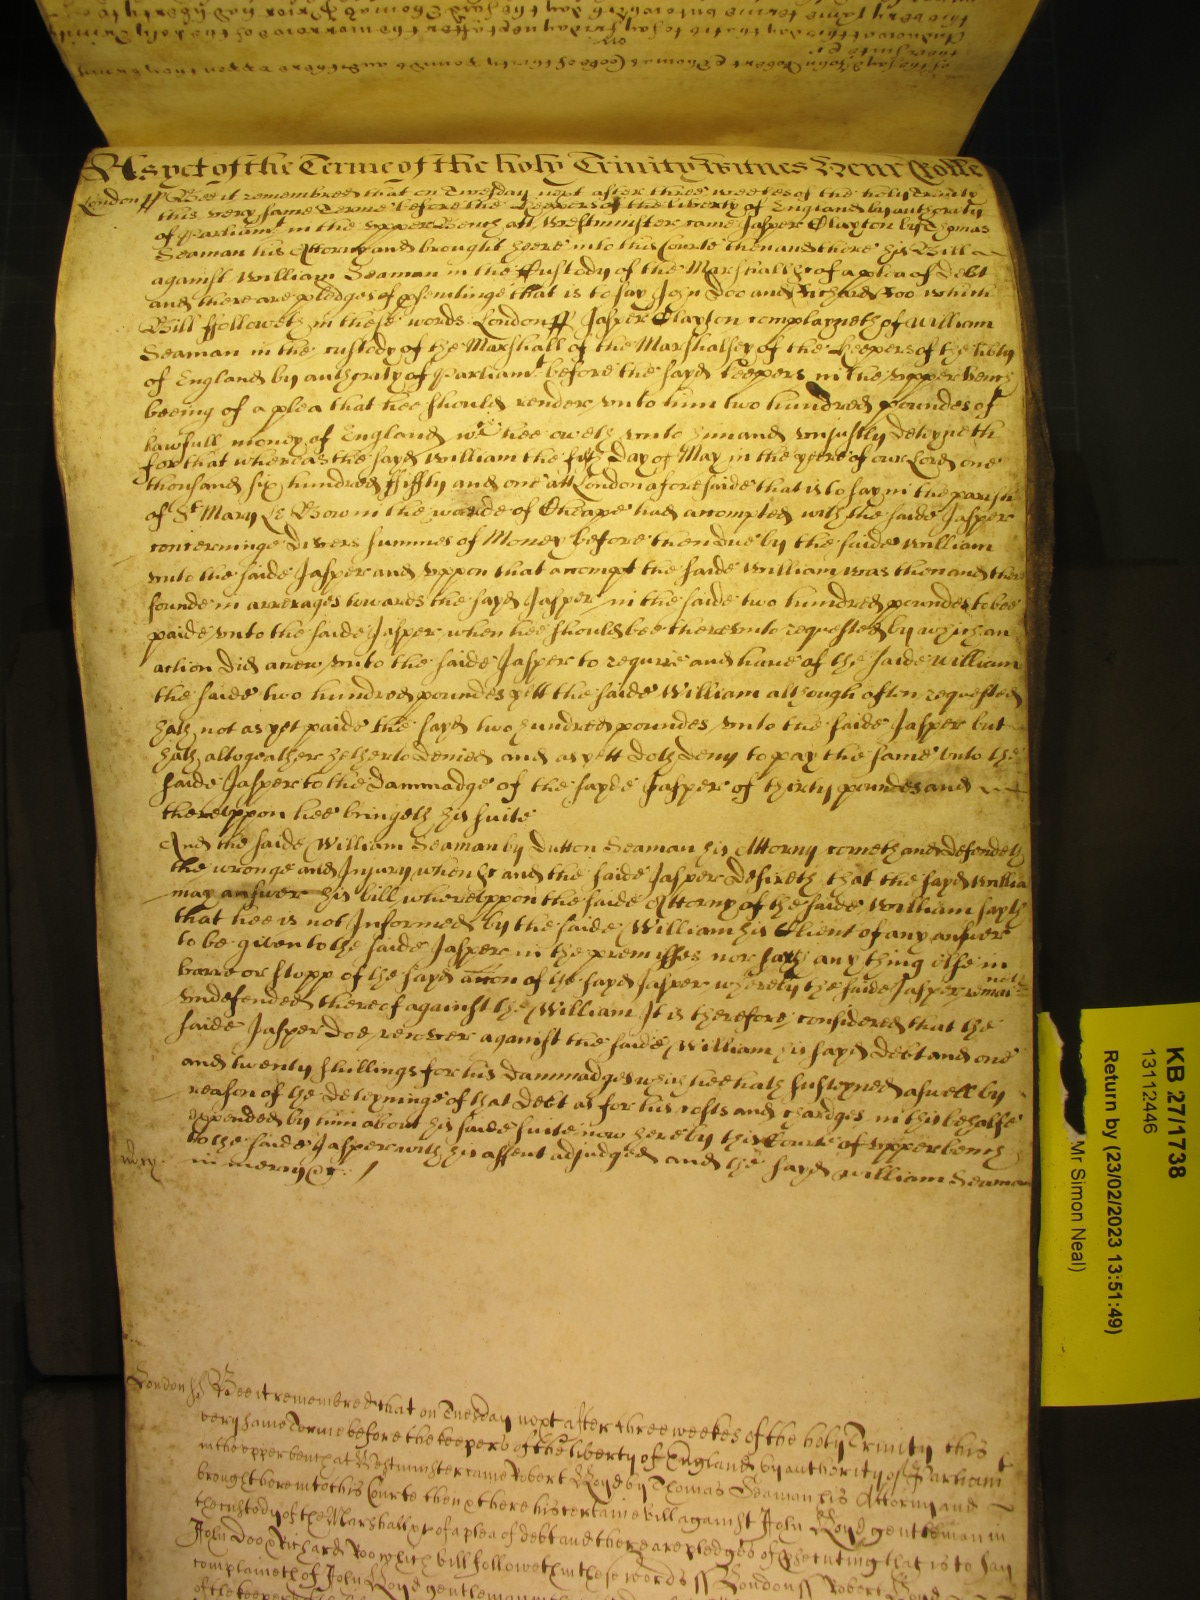 As yet of the Terme of the holy Trinity witnes Henr Rolle
London ss Bee it remembred that on Twesday next after three weekes of the holy Trinity
this very same Terme before the Keepers of the liberty of England by authority
of Parliamt in the upper Bench att Westminster came Jasper Clayton by Thomas
Seaman his Attorny and brought heere into this Courte then and there his Bill
against William Seaman in the Custody of the Marshall &c of a plea of Debt
and there are pledges of psentinge that is to say John Doo and Richard Roo which
Bill ffolloweth in these words London ss Jasper Clayton complayneth of William
Seaman in the custody of the Marshall of the Marshalsey of the Keepers of the libty
of England by authority of Parliamt before the sayd keepers in the upper bench
beeing of a plea that hee should render unto him two hundred poundes of
lawfull money of England wch hee oweth unto him and unjustly deteyneth
for that whereas the sayd William the day of May in the yeere of our Lord one
thousand six hundred ffiffty and one att London aforesaide that is to say in the parish
of St Mary Le Bow in the warde of Cheape had accompted with the saide Jasper
concerninge divers summes of Money before then due by the saide William
unto the saide Jasper and uppon that accompt the saide William was then and there
founde in arrerages towards the sayd Jasper in the saide two hundred poundes to bee
paide unto the saide Jasper when hee should bee thereunto requested by which an
action did acrew unto the saide Jasper to require and have of the saide William
the saide two hundred poundes yett the saide William although often requested
hath not as yet paide the sayd two hundred poundes unto the saide Jasper but
hath altogeather hetherto denied and as yett doth deny to pay the same unto the
saide Jasper to the dammadge of the sayde Jasper of thirty poundes and
thereuppon hee bringeth his suite
And the saide William Seaman by Dutton Seaman his Attorny cometh and defendeth
the wronge and Injury when &c and the saide Jasper desireth that the sayd Willia
may answer his bill whereuppon the saide Attorny of the saide William sayth
that hee is not Informed by the saide William his Client of any answer
to be given to the saide Jasper in the premisses nor sayth any thing else in
barre or stopp of the sayd accon of the sayd Jasper whereby the saide Jasper remai
neth
undefended thereof against the William It is therefore considered that the
saide Jasper doe recover against the saide William his sayd debt and one
and twenty shillings for his dammadges wch hee hath susteyned aswell by
reason of the deteyninge of that debt as for his costs and chardges in this behalfe
expended by him about his saide suite now here by this Courte of upper bench
to the saide Jasper with his assent adjudged and the sayd William Seaman
mcy in mercy &c
London ss Bee it remembered that on Tuesday next after three weekes of the holy Trinity this
very same Terme before the keepers of the liberty of England by authority of Parliamt
in the upper bench at Westminster came Robert Boyd by Thomas Seaman his Attorny and
brought here into this Courte then & there his certaine bill against John Boyd gentleman in
the custody of the Marshall &c of a plea of debt and there are pledges of psecuting that is to say
John Doo & Richard Roo which bill followeth in these words ss London ss Robert Boyd
complaineth of John Boyd gentleman
KB 27/1738
13112446
Return by (23/02/2023 13:51:49)
Mr Simon Neal)